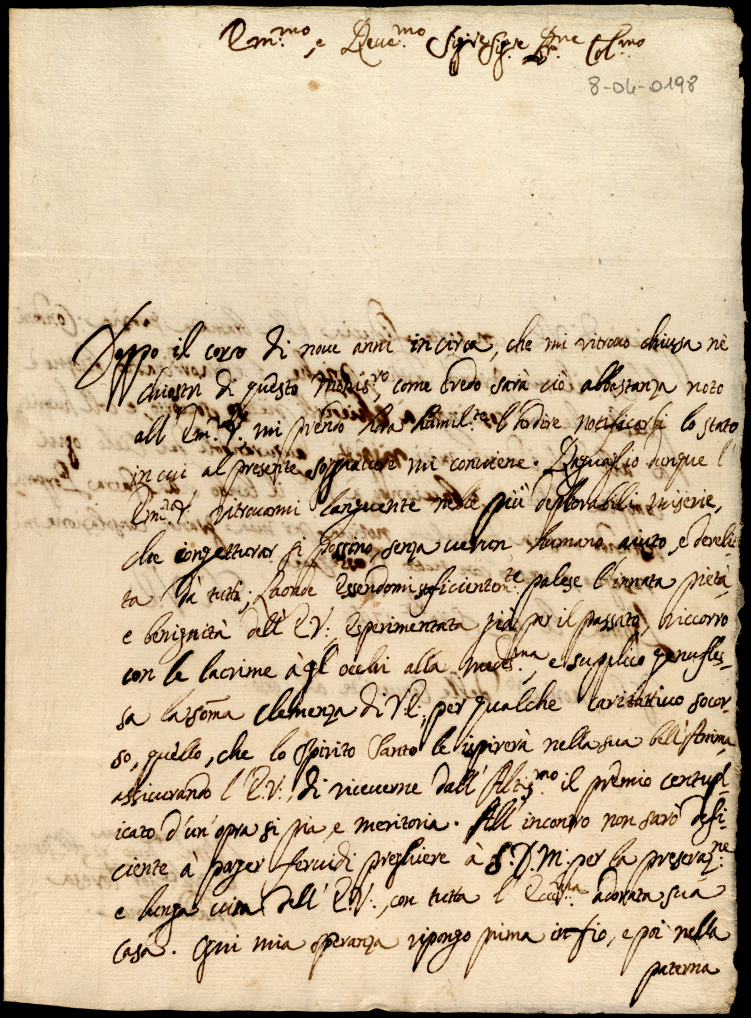 Em.mo, e Reve.mo Sig.re Sig.re P.ne Col.mo
8-04-0198
Doppo il corso di noue anni in circa, che mi ritrouo chiusa nè
chiostri di questo Monis.ro, come credo sarà ciò abbastanza noto
all' Em.za V. mi prendo hora humil.te l'ardire notificarli lo stato
in cui al presente soggiacere mi conuiene. Ragguaglio dunque l'
Em.za V. ritrouomi languente nelle più deplorabili miserie,
che congetturar si possino, senza uerun humano aiuto, e derelit-
ta da tutti; Laonde essendomi suficientem.te palese l'innata pietà
e benignità dell' E.V., esperimentata già per il passato, riccorro
con le lacrime à gl'occhi alla medes.ma, e supplico genufles-
sa la som̃a clemenza di V.E., per qualche caritatiuo socor-
so, quello, che lo Spirito Santo le ispirerà nella sua bell'Anima,
assicurando l'E.V., di riceuerne dall'Altis.mo il premio centupl-
icato d'un'opra si pia, e meritoria. All'incontro non sarò defi-
ciente à porger feruidi preghiere à S.D.M. per la preseruaz.ne
e lunga uita dell' E.V., con tutta l'Ecc.ma adorata sua
Casa. Ogni mia speranza ripongo prima in Dio, e poi nella
paterna